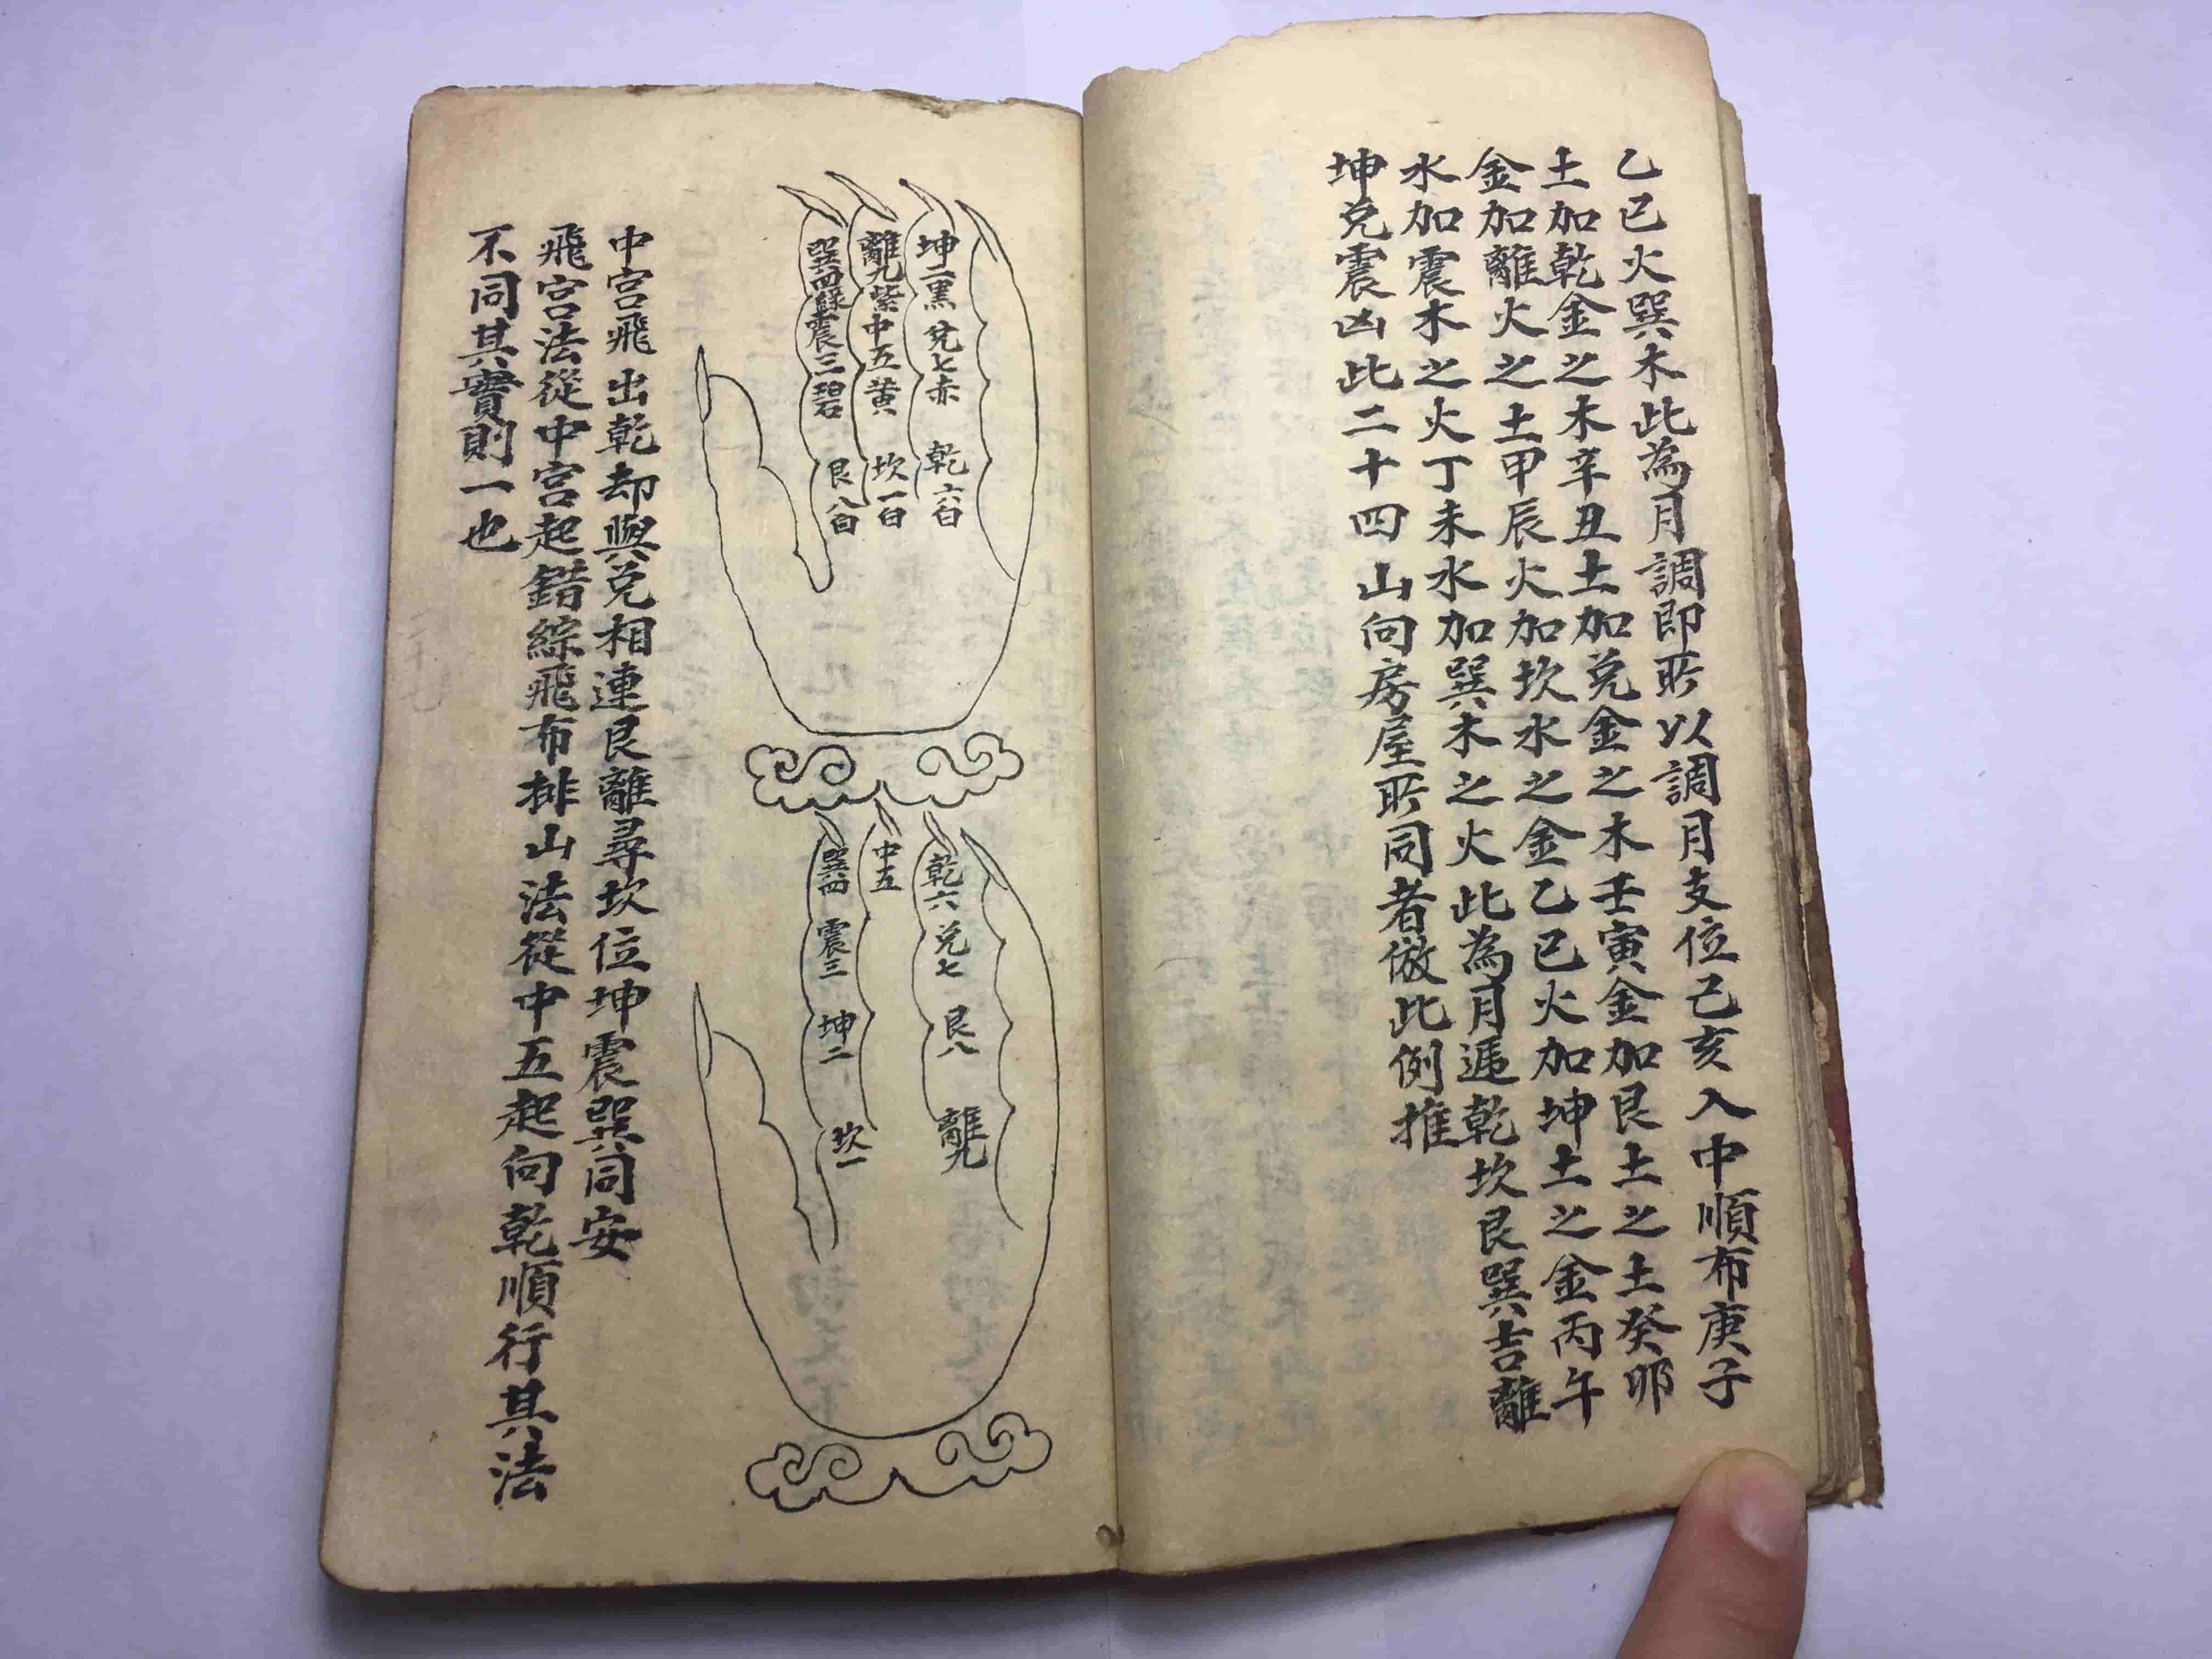 乙巳火巽木此為月調即所以調月支位己亥入中順布庚子
土加乾金之木辛丑土加兌金之木壬寅金加艮土之土癸卯
金加離火之土甲辰火加坎水之金乙巳火加坤土之金丙午
水加震木之火丁未水加巽木之火此為月遁乾坎艮巽吉離
坤兌震凶此二十四山向房屋所同者倣此例推
坤二黑 兌七赤 乾六白
離九紫 中五黃 坎一白
巽四綠 震三碧 艮八白
乾六 兌七 艮八 離九
中五
巽四 震三 坤二 坎一
中宮飛出乾却與兌相連艮離尋坎位坤震巽同安
飛宮法從中宮起錯綜飛布排山法從中五起向乾順行其法
不同其實則一也